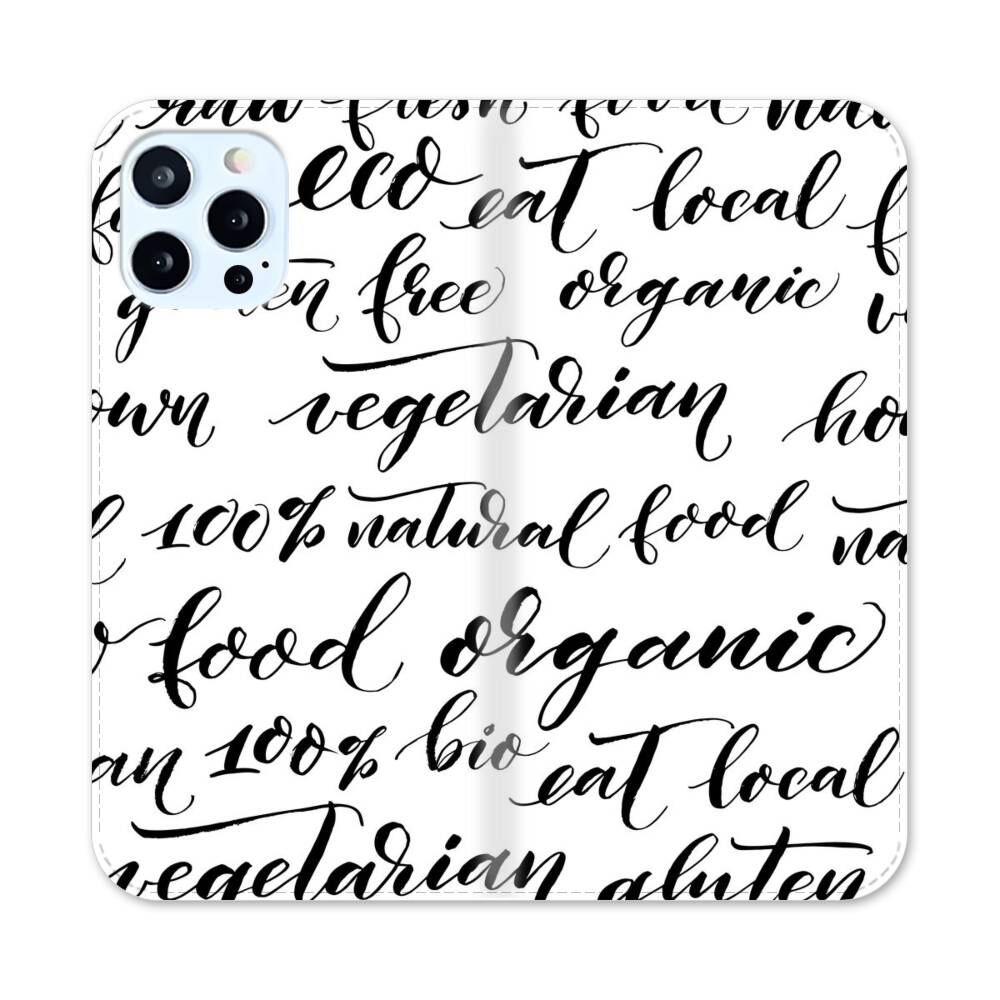 raw fresh food
eco eat local
gluten free organic
own vegetarian
100% natural food na
food organic
an 100% bio eat local
vegetarian gluten